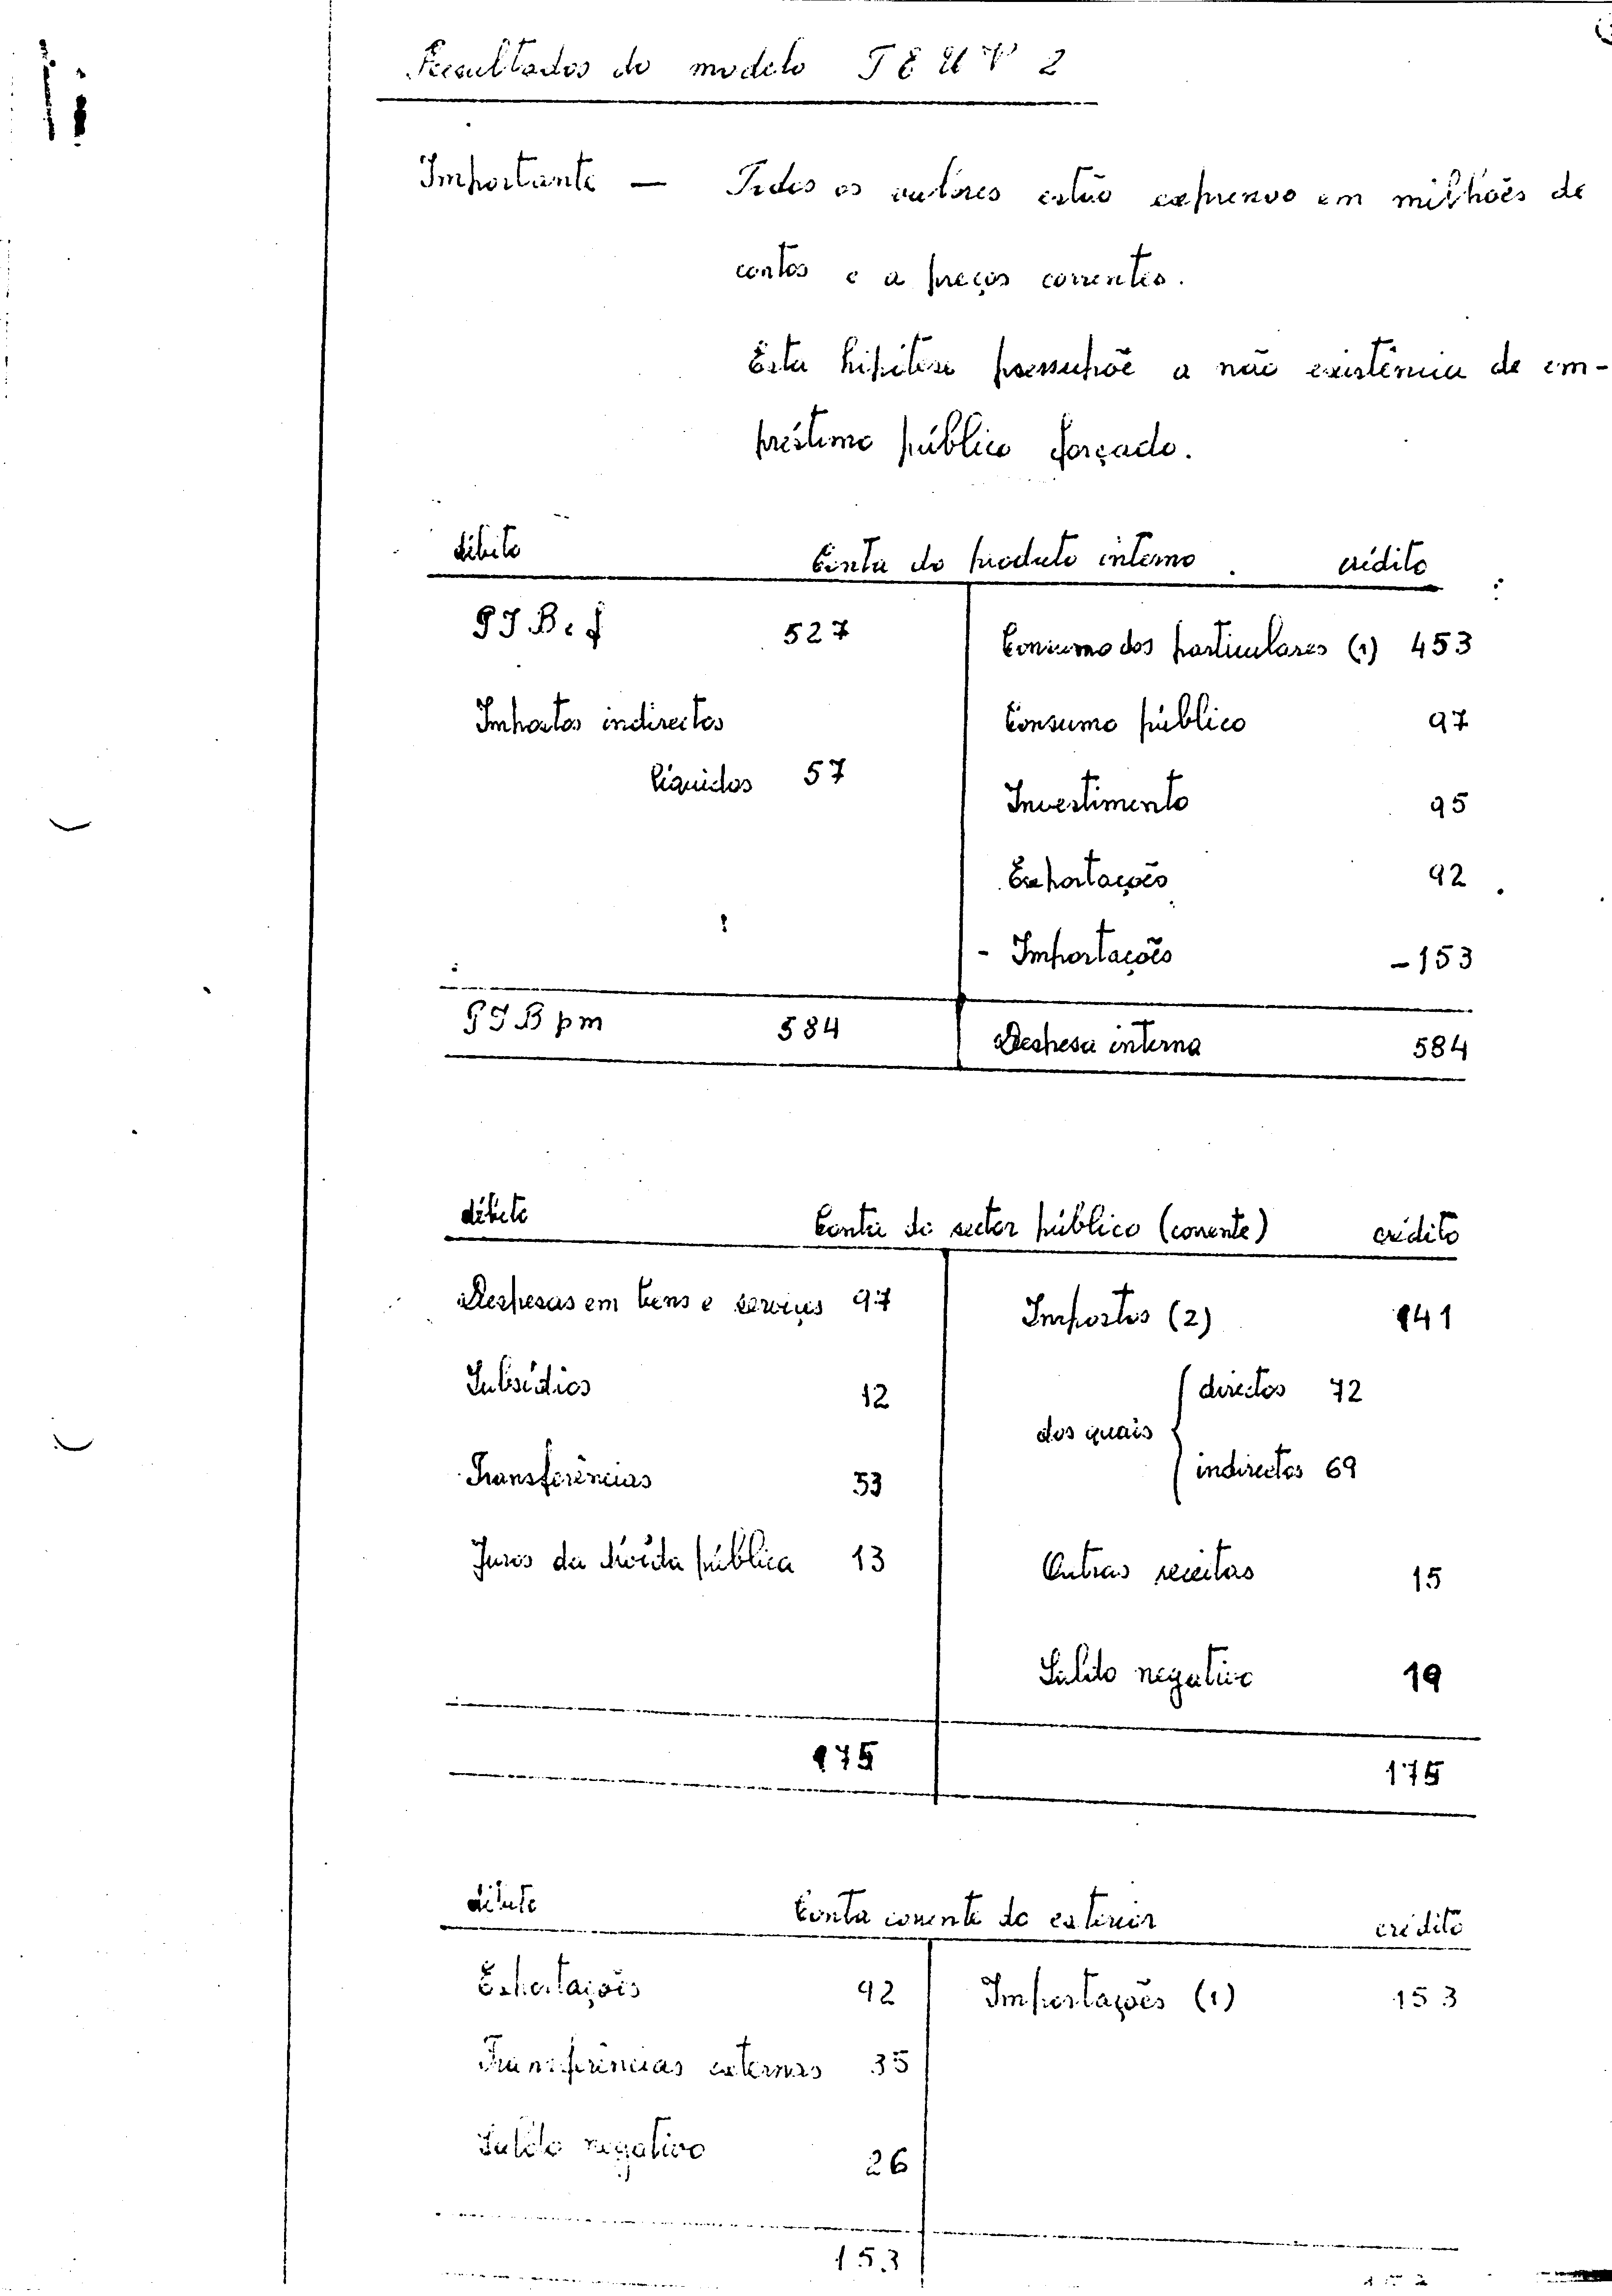 Resultados do modelo TEUV 2
Importante — Todos os valores estão expresso em milhões de
contos e a preços correntes.
Esta hipótese pressupõe a não existência de em-
préstimo público forçado.
débito Conta do produto interno crédito
PIB cf 527 Consumo dos particulares (1) 453
Impostos indirectos Consumo público 97
líquidos 57 Investimento 95
Exportações 92
- Importações -153
PIB pm 584 Despesa interna 584
débito Conta do sector público (corrente) crédito
Despesas em bens e serviços 97 Impostos (2) 141
Subsídios 12 directos 72
dos quais
Transferências 53 indirectos 69
Juros da dívida pública 13 Outras receitas 15
Saldo negativo 19
175 175
débito Conta corrente do exterior crédito
Exportações 92 Importações (1) 153
Transferências externas 35
Saldo negativo 26
153